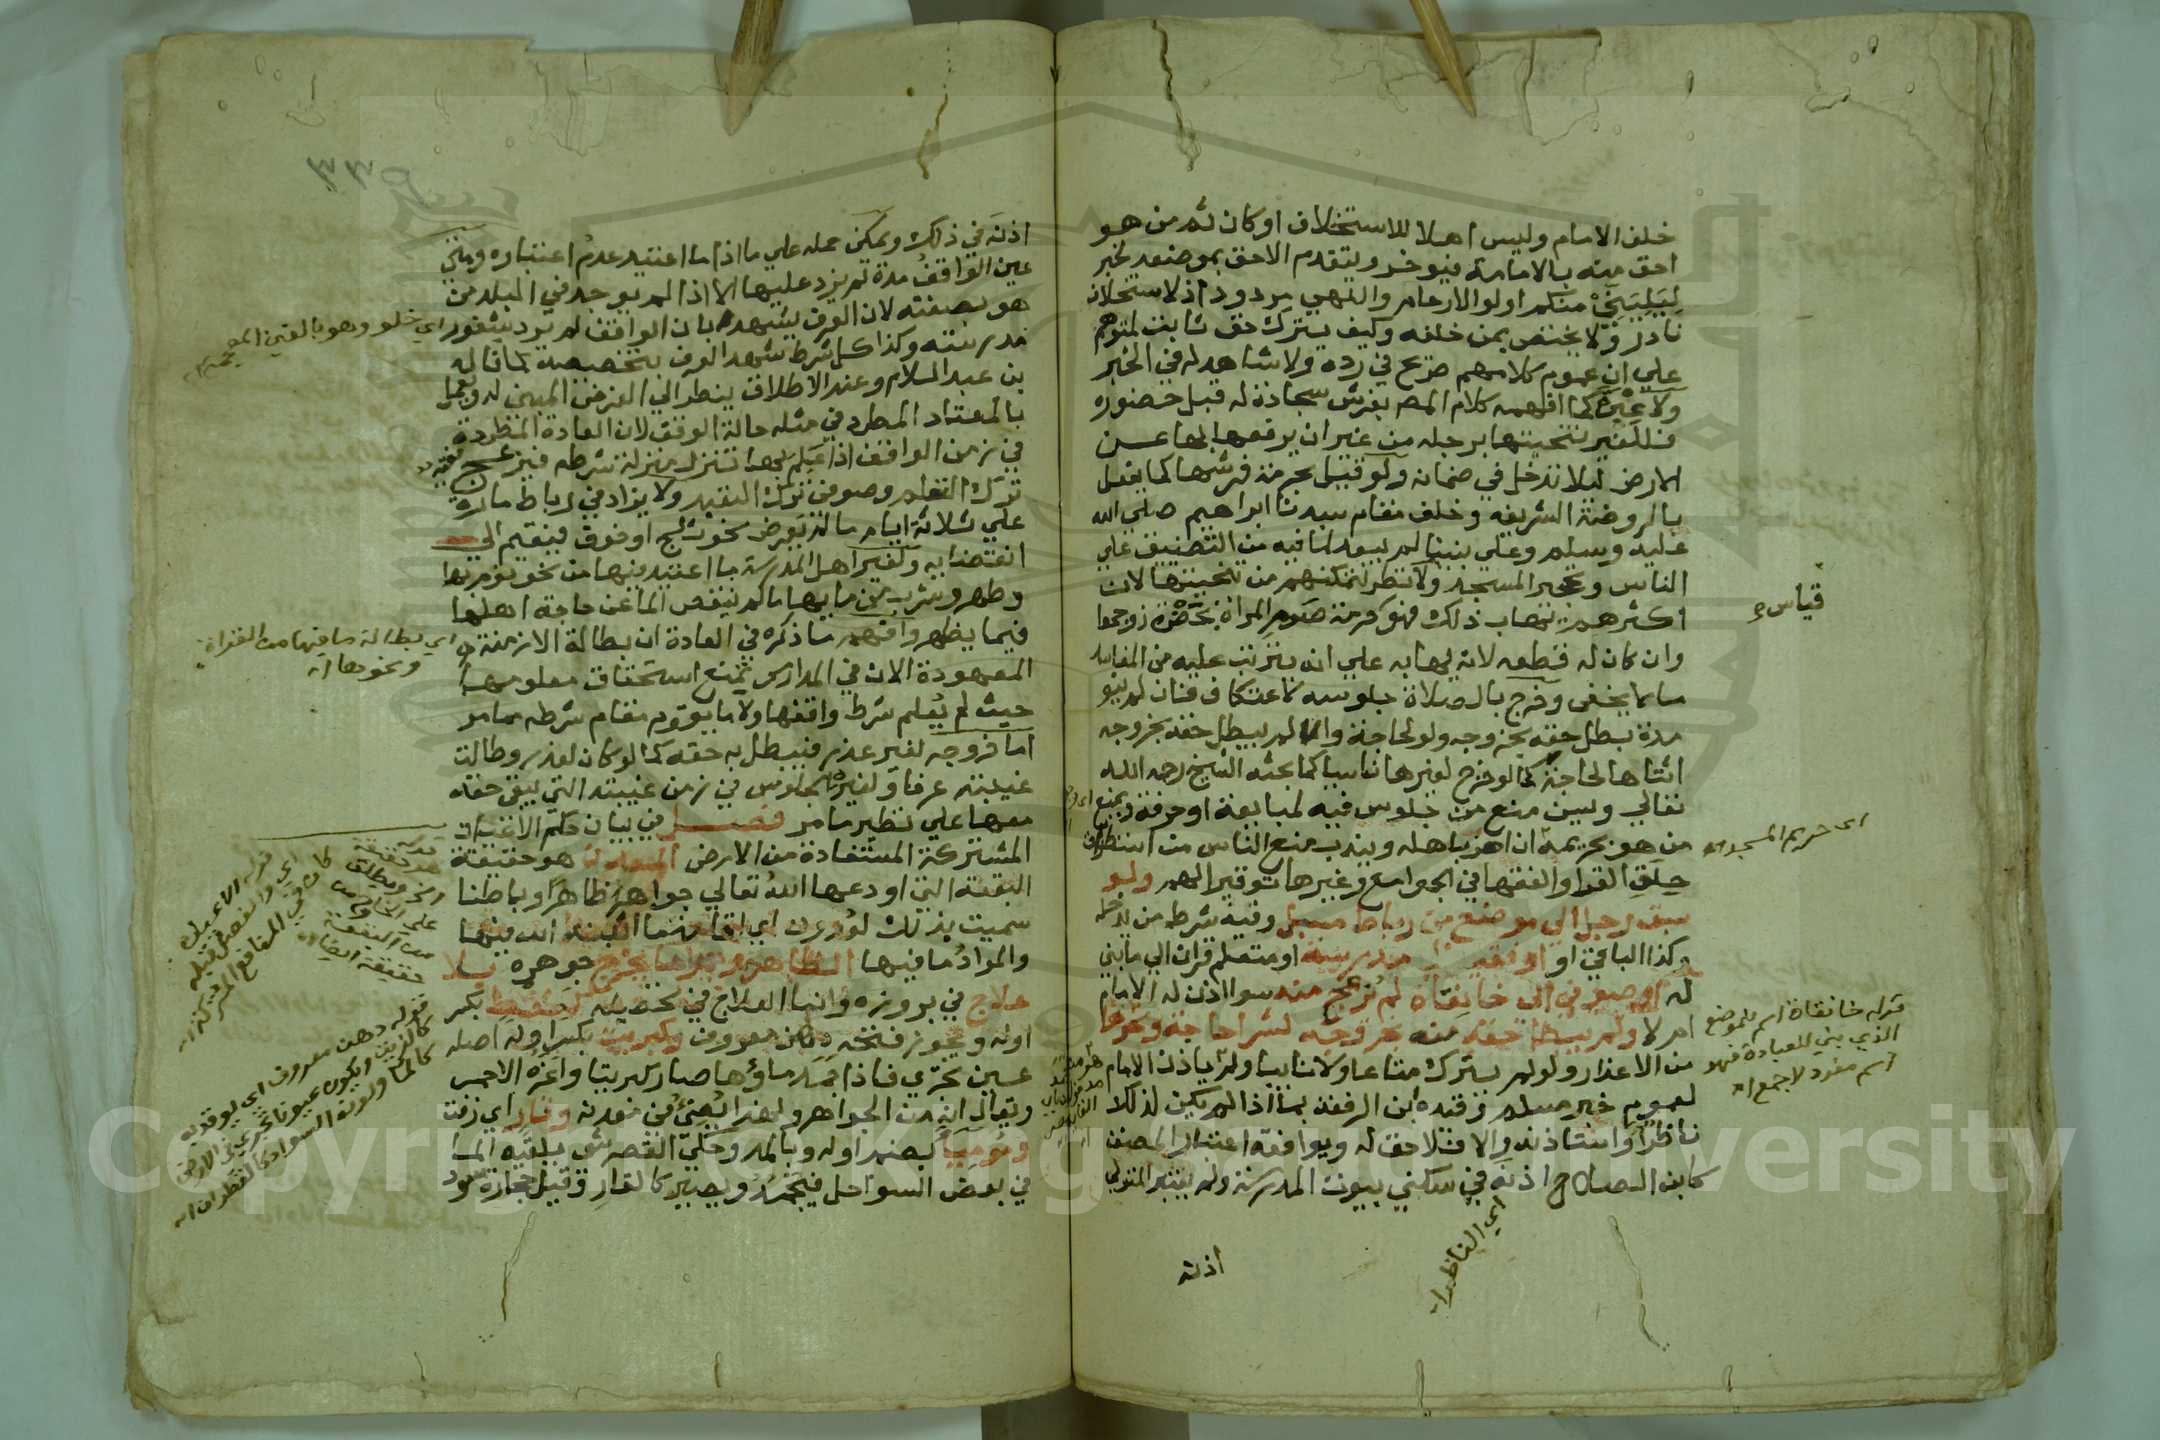 خلف الامام وليس اهلا للاستخلاف او كان ثم من هو
احق منه بالامامة فيوخر ويتقدم الاحق بموضعه لخبر
ليليني منكم اولوا الارحام والنهي مردود اذ الاستخلاف
نادر ولا يختص بمن خلفه وكيف يترك حق ثابت لمتوهم
علي ان عموم كلامهم صريح في رده ولا شاهد له في الخبر
ولا عبرة كما افهمه كلام المص بفرش سجادة له قبل حضوره
فللغير تنحيتها برجله من غير ان يرفعها بها عن
الارض ليلا تدخل في ضمانه ولو قيل بحرمة فرشها كما يفعل
بالروضة الشريفة وخلف مقام سيدنا ابراهيم صلي الله
عليه وسلم وعلي نبينا لم يبعد لما فيه من التضييق علي
الناس وتحجير المسجد ولا نظر لتمكنهم من تنحيتها لان
اكثرهم يهاب ذلك فهو كحرمة صوم المراة بحضرة زوجها
وان كان له قطعه لانه يهابه علي انه يترتب عليه من المفاسد
ما لا يخفي وخرج بالصلاة جلوسه لاعتكاف فان لم ينو
مدة بطل حقه بخروجه ولو لحاجة والا لم يبطل حقه بخروجه
اثناها لحاجة كما لو خرج لغيرها ناسيا كما بحثه الشيخ رحمه الله
تعالي ويسن منع من جلوس فيه لمبايعة او حرفة ويمنع
من هو بحريمه ان اضر باهله ويندب منع الناس من استطراق
حلق القرا والفقها في الجوامع وغيرها توقيرا لهم ولو
سبق رجل الي موضع من رباط مسبل وفيه شرط من يدخله
وكذا الباقي او فقيه الي مدرسة او متعلم قران الي ما بني
له او صوفي الي خانقاه لم يزعج منه سوا اذن له الامام
ام لا ولم يبطل حقه منه بخروجه لشرا حاجة ونحوها
من الاعذار ولو لم يترك متاعا ولا نايبا ولم ياذن الامام
لعموم خبر مسلم وقيده ابن الرفعة بما اذا لم يكن لذلك
ناظر او استاذنه والا فلا حق له ويوافقه اعتبار المصنف
كابن الصلاح اذنه في سكني بيوت المدرسة ولم يعتبر المتولي
اذنه
قياس
اي حريم المسجد اه
قوله خانقاه اسم للموضع
الذي بني للعبادة فهو
اسم مفرد لا جمع اه
اي الناظر اه
٣٣٥
اذنه في ذلك ويمكن حمله علي ما اذا ما اعتيد عدم اعتباره ومتي
عين الواقف مدة لم يزد عليها الا اذا لم يوجد في البلد من
هو بصفته لان العرف يشهد بان الواقف لم يرد شغور
مدرسته وكذا كل شرط شهد العرف بتخصيصه كما قاله
بن عبد السلام وعند الاطلاق ينظر الي الغرض المبني له ويعمل
بالمعتاد المطرد في مثله حالة الوقف لان العادة المطردة
في زمن الواقف اذا علم بها تنزل منزلة شرطه فيزعج فقيه
ترك التعلم وصوفي ترك التعبد ولا يزاد في رباط مارة
علي ثلاثة ايام ما لم يعرض نحو ثلج او خوف فيقيم الي
انقضايه ولغير اهل المدرسة ما اعتيد فيها من نحو نوم بها
وطهر وشرب من مايها ما لم ينقص الما عن حاجة اهلها
فيما يظهر وافهم ما ذكره في العادة ان بطالة الازمنة
المعهودة الان في المدارس تمنع استحقاق معلومها
حيث لم يعلم شرط واقفها ولا ما يقوم مقام شرطه مما مر
اما خروجه لغير عذر فيبطل به حقه كما لو كان لعذر وطالت
غيبته عرفا ولغيره الجلوس في زمن غيبته التي يبقي حقه
معها علي نظير ما مر فصل في بيان حكم الاعيان
المشتركة المستفادة من الارض المعدن هو حقيقة
البقعة التي اودعها الله تعالي جواهر ظاهرا وباطنا
سميت بذلك لعدون اي اقامة ما اثبته الله فيها
والمراد ما فيها الظاهر وهو ما يخرج جوهره بلا
علاج في بروزه وانما العلاج في تحصيله كنفط بكسر
اوله ويجوز فتحه دهن معروف وكبريت بكسر اوله اصله
عين تجري فاذا جمد ماؤها صار كبريتا واعزه الاحمر
ويقال انه من الجواهر ولهذا يضئ في معدنه وقار اي زفت
وموميا بضم اوله وبالمد وحكي القصر شئ يلقيه الما
في بعض السواحل فيجمد ويصير كالقار وقيل حجارة سود
اي خلو وهو بالغين المعجمة اه
اي بطالة ما فيها من القراة
ونحوها اه
قوله دهن معروف اي يوقد به